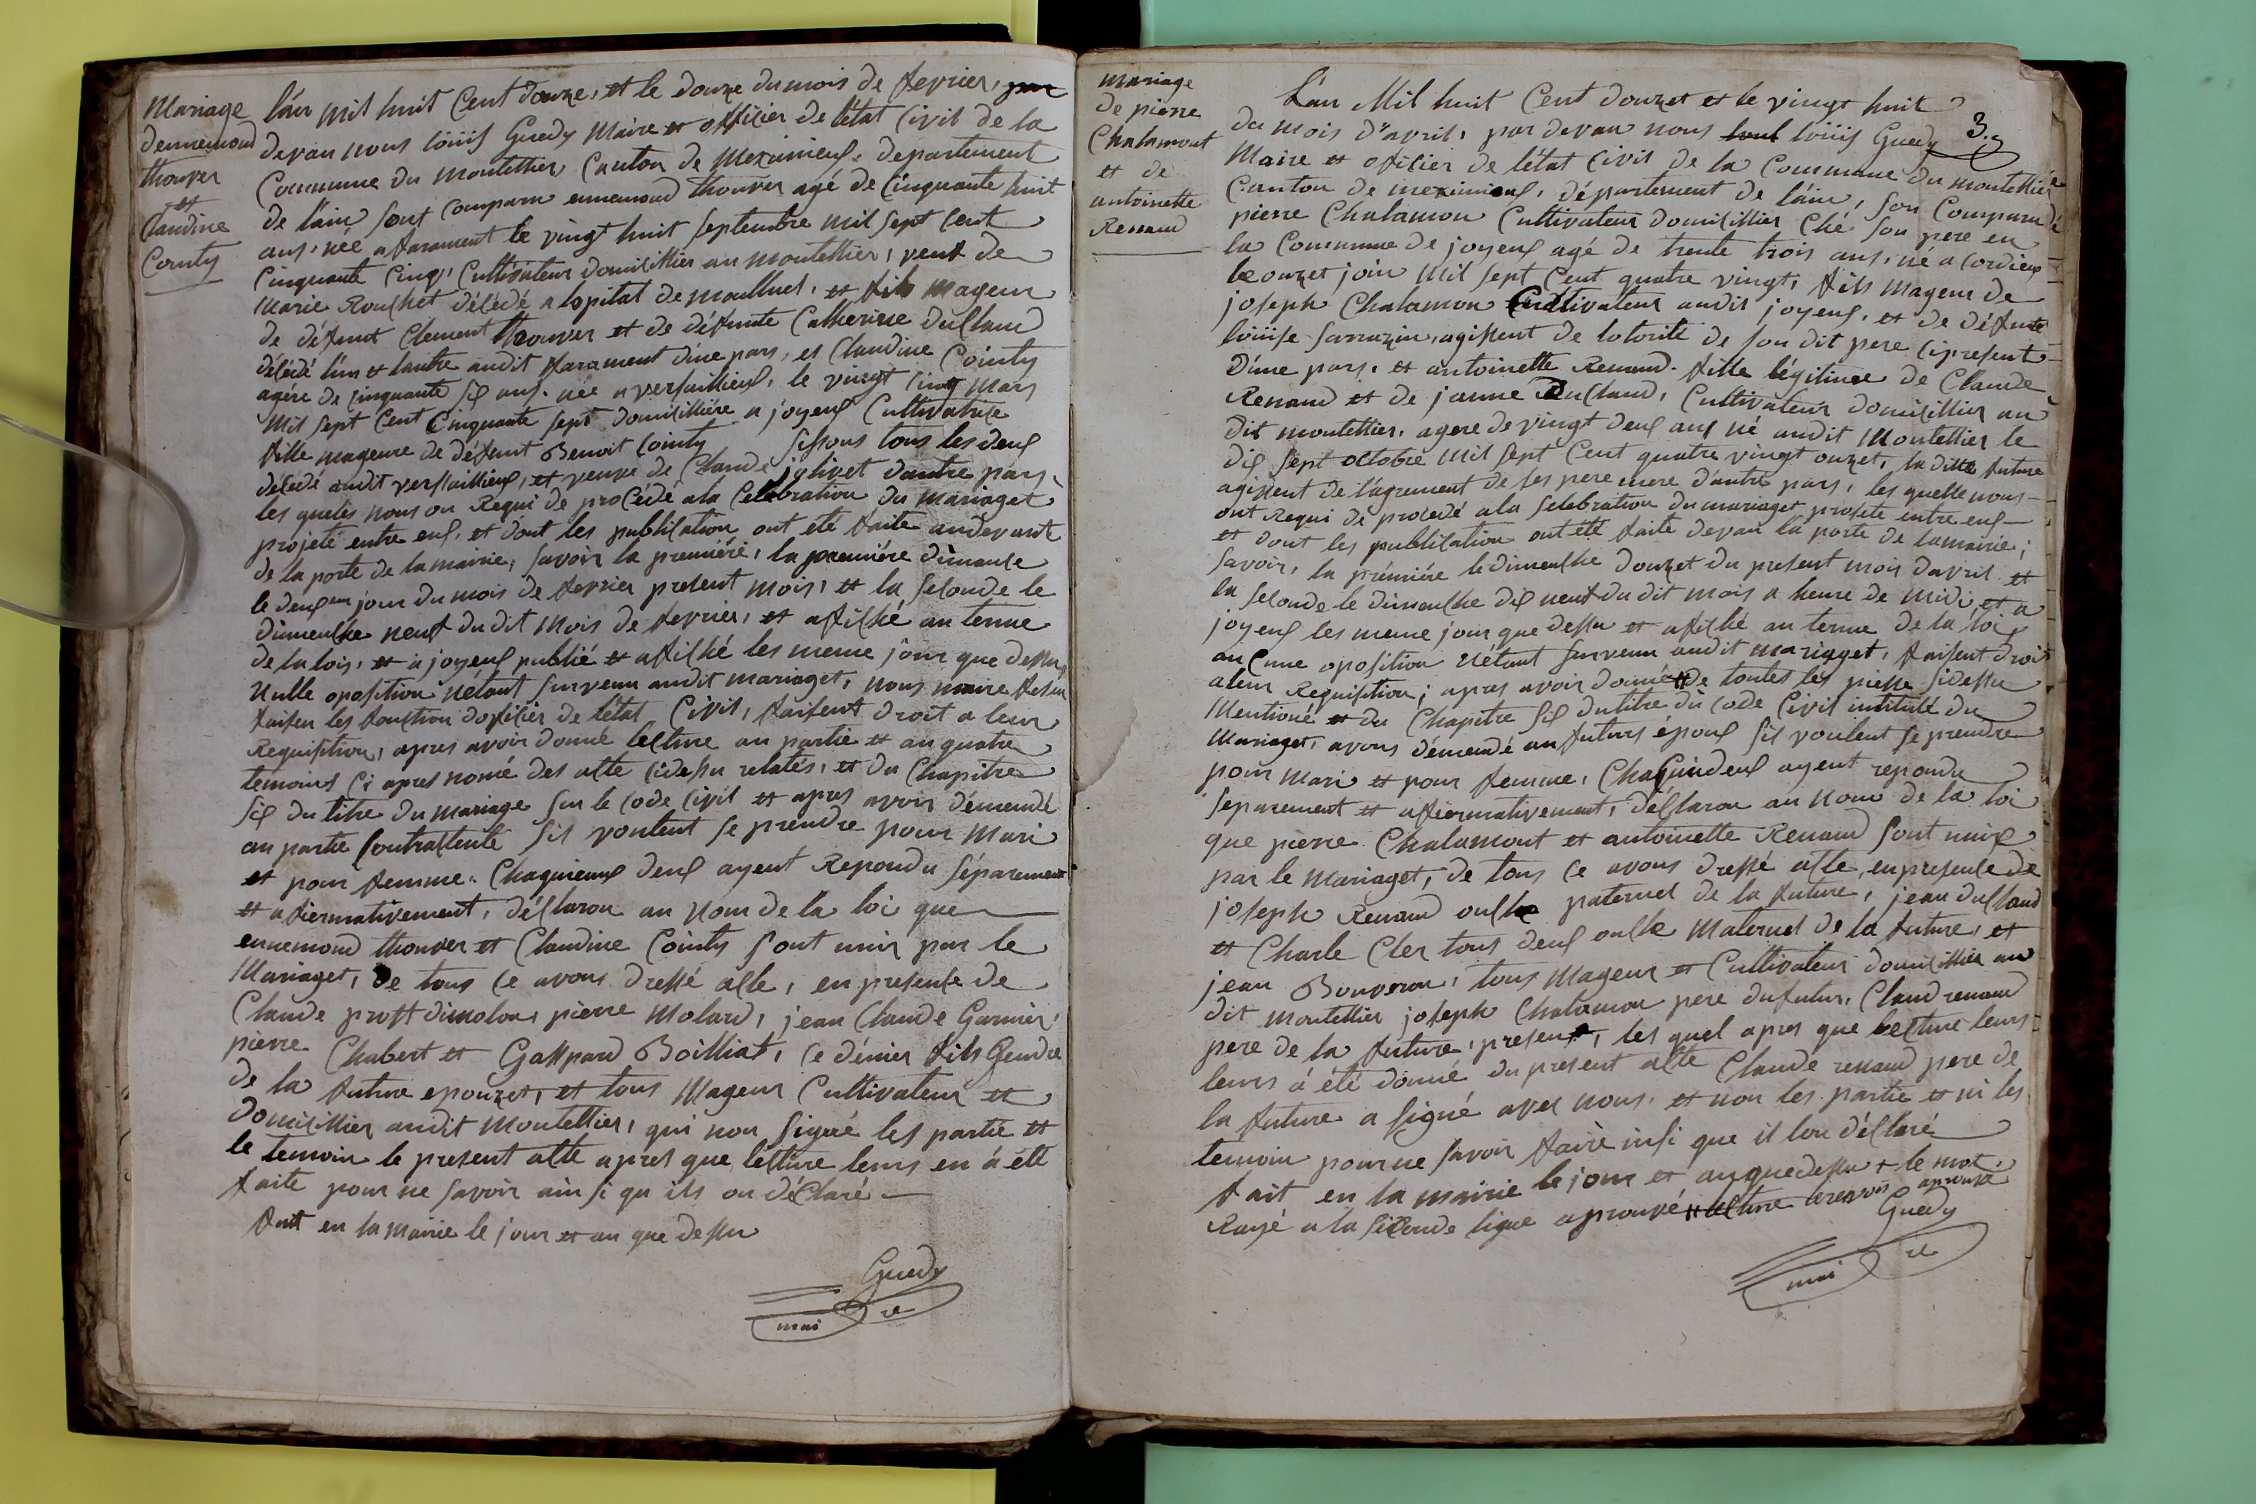 Mariage
dennemond
thouver
et
Claudine
Cointy
l'an mil huit Cent douze, et le douze du mois de fevrier, par
devan nous loüis Guedy Maire et officier de l'état Civil de la
Commune du montellier Canton de Meximieuf, departement
de l'ain sont comparu ennemond thouver agé de Cinquante huit
ans, née a faramant le vingt huit septembre mil sept cent
Cinquante Cinq, Cultivateur domicillier au montellier, veuf de
Marie Rouchet décédé a lopital de moulluel, et fils mageur
de défunt Clement thouver et de défunte Catherine duclaud
décédé l'un et lautre audit farament d'une pars, et Claudine Cointy
agére de cinquante six ans, née a versaillieux, le vingt cinq mars
Mil sept Cent Cinquante sept domicilliére a joyeux Cultivatrice
fille mageure de défunt Benoit Cointy
décédé audit versaillieux, et veuve de Claude jolivet dautre pars,
les quels nous on Requi de procédé a la Celebration du mariaget
projeté entre eux, et dont les publication ont eté faite au devant
de la porte de la mairie, savoir la premiére, la premiére dimanche
le deuxem jour du mois de fevrier present mois, et la seconde le
dimenche neuf du dit mois de fevrier, et affiché au terme
de la lois, et a joyeux publié et affiché les meme jour que dessu
Nulle oposition nétant survenu audit mariaget, nous maire
faisen les fonction dofficier de létat Civil, faisent droit a leur
Requisition, apres avoir donné lecture au partie et au quatre
temoins Ci apres nomé des acte cidessu relatés, et du Chapitre
six du titre du mariage sur le Code Civil et apres avoir démendé
au partie Contractente sil voulent se prendre pour Mari
et pour femme, Chaquieun deux ayent Repondu séparement
et afiermativement, déclaron au Nom de la loi que
ennemond thouver et Claudine Cointy sont unis par le
Mariaget, de tous ce avons dressé acte, en presence de
Claude prost dimolon, pierre Molard, jean Claude Garnier,
pierre Chabert et Gaspard Boilliat, ce dénier fils Gendre
de la future epouzet, et tous Mageur Cultivateur et
domicillier audit Montellier, qui non signé les partie et
le temoin le present acte apres que lecture leurs en à été
faite pour ne savoir ainsi qu ils on déclaré
fait en la mairie le jour et an que dessu
Guedy
mai re
mariage
de pierre
Chalamont
et de
antoinette
Renaud
3.
L'an Mil huit Cent douzet et le vingt huit
du mois d'avril, par devan nous loüis Guedy
Maire et officier de l'état Civil de la Commune du montellier
Canton de meximieuf, département de l'ain, son Comparu
pierre Chalamon Cultivateur domicillier Ché son pere en
la Commune de joyeux agé de trente trois ans, né a cordieux
le onzet join Mil sept Cent quatre vingt, fils mageur de
joseph Chalamon Cultivateur audit joyeux, et de défunte
loüise Sarrazin, agissent de lotorité de son dit pere cipresent
d'une pars, et antoinette Renaud fille légitime de Claude
Renaud et de jeanne Duclaud, Cultivateur domicillier au
dit montellier, agere de vingt deux ans né audit Montellier le
dix sept octobre mil sept Cent quatre vingt onzet, la ditte future
agissent de l'agrement de ses pere mere d'autre pars, les quelle nous
ont Requi de procedé a la selebration du mariaget projeté entre eux
et dont les publication ont été faite devan la porte de la mairie,
savoir, la prémiére le dimenche douzet du present mois davril et
la seconde le dimenche dix neuf du dit mois a heure de midi, et a
joyeux les meme jour que dessu et afiché au terme de la loi
au Cune oposition nétant survenu audit mariaget, faisent droit
a leur Requisition, apres avoir donné de toutes les piesse sidessu
Mentioné et du Chapitre six du titre du code Civil intitulé du
Mariaget, avons démendé au futurs époux sil voulent se prendre
pour mari et pour femme, Chaquindeux ayent repondu
separement et afiermativement, déclaron au Nom de la loi
que pierre Chalamont et antoinette Renaud sont unis
par le Mariaget, de tous ce avons dressé acte, en presence de
joseph Renaud oncle paternel de la future, jean duclaud
et Charle Cler tous deux oncle Maternel de la future, et
jean Bouveron, tous Mageur et Cultivateur domicillier au
dit montellier joseph Chalamon pere du futur, Claud renaud
pere de la future, presens, les quel apres que lecture leurs
leurs à été donné du present acte Claude renaud pere de
la future a signé avec nous, et non les partie et ni les
temoin pour ne savoir faire insi que il lon déclaré
fait en la mairie le jour et an que dessu + le mot
Rayé a la seconde ligne aprouvé # lecture aprouvé
Guedy
mai re